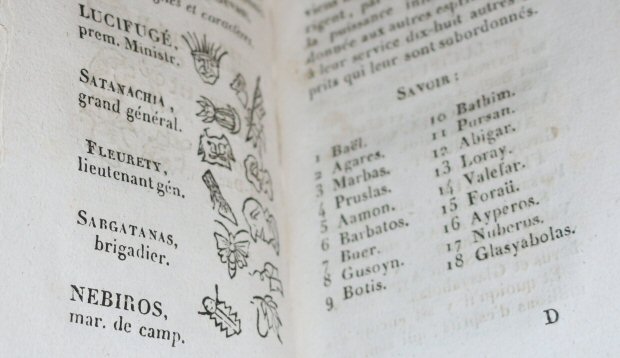 gnes et caractères
LUCIFUGÉ,
prem. Ministr.
SATANACHIA,
grand général.
FLEURETY,
lieutenant gén.
SARGATANAS,
brigadier.
NEBIROS,
mar. de camp.
rigent, par
la puissance
donnée aux autres esprits
à leur service dix-huit autres
prits qui leur sont subordonnés.
SAVOIR :
1 Baël.
2 Agares.
3 Marbas.
4 Pruslas.
5 Aamon.
6 Barbatos.
7 Buer.
8 Gusoyn.
9 Botis.
10 Bathim.
11 Pursan.
12 Abigar.
13 Loray.
14 Valefar.
15 Foraü.
16 Ayperos.
17 Nuberus.
18 Glasyabolas.
D